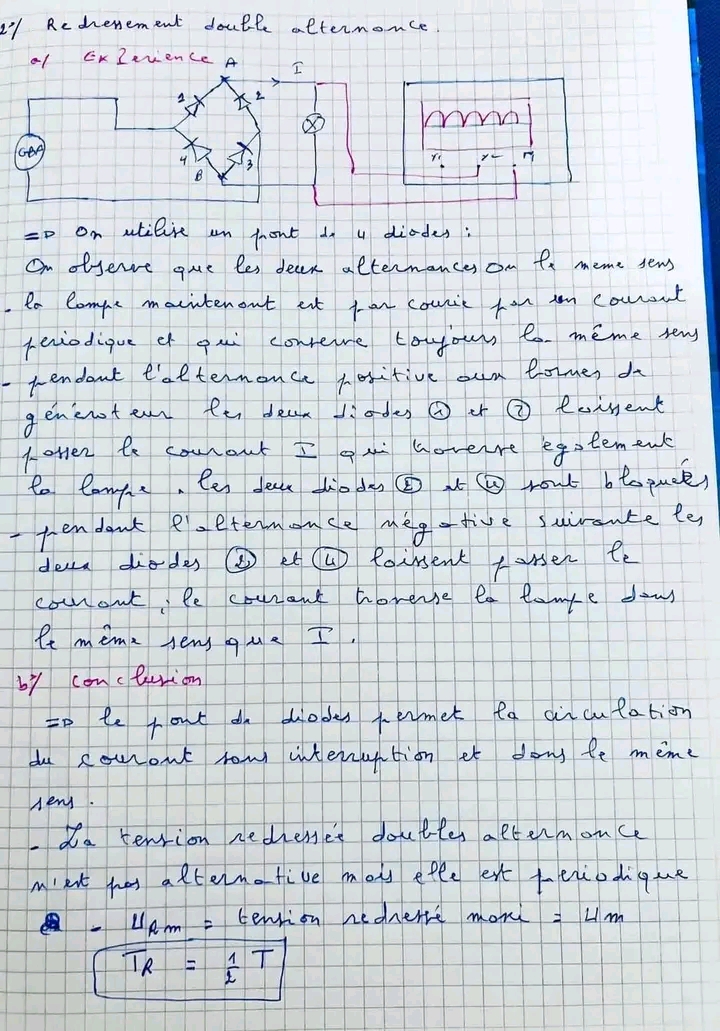 2°/ Redressement double alternonce.
a/ Exzerience
A
I
1
2
4
3
B
GBA
Y1
=D On utilise un pont de 4 diodes :
On observe que les deux alternances On le meme sens
- la lampe maintenant est par courie par un courant
periodique et qui conserve toujours la même sens
- pendant l'alternance positive aux bornes de
générateur les deux diodes ① et ③ laissent
passer le courant I qui traverse egalement
la lampe. les deux diodes ② et ④ sont bloqueés
- pendant l'alternance négative suivante les
deux diodes ② et ④ laissent passer le
courant ; le courant traverse la lampe dans
le même sens que I.
b°/ conclusion
=D le pont de diodes permet la circulation
du courant sans interruption et dans le même
sens.
- La tension redressée doubles alternance
n'est pas alternative mais elle est periodique
- URm = tension redressé maxi = Um
TR = 1/2 T